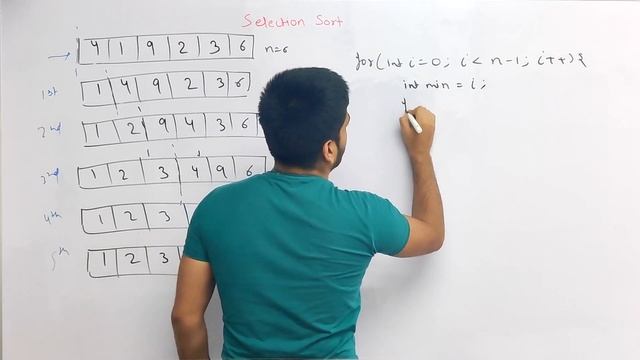 Selection Sort
4 1 9 2 3 6 n=6
1st 1 4 9 2 3 6
2nd 1 2 9 4 3 6
3rd 1 2 3 4 9 6
4th 1 2 3
5th 1 2 3
for(int i=0; i < n-1; i++){
int min = i;